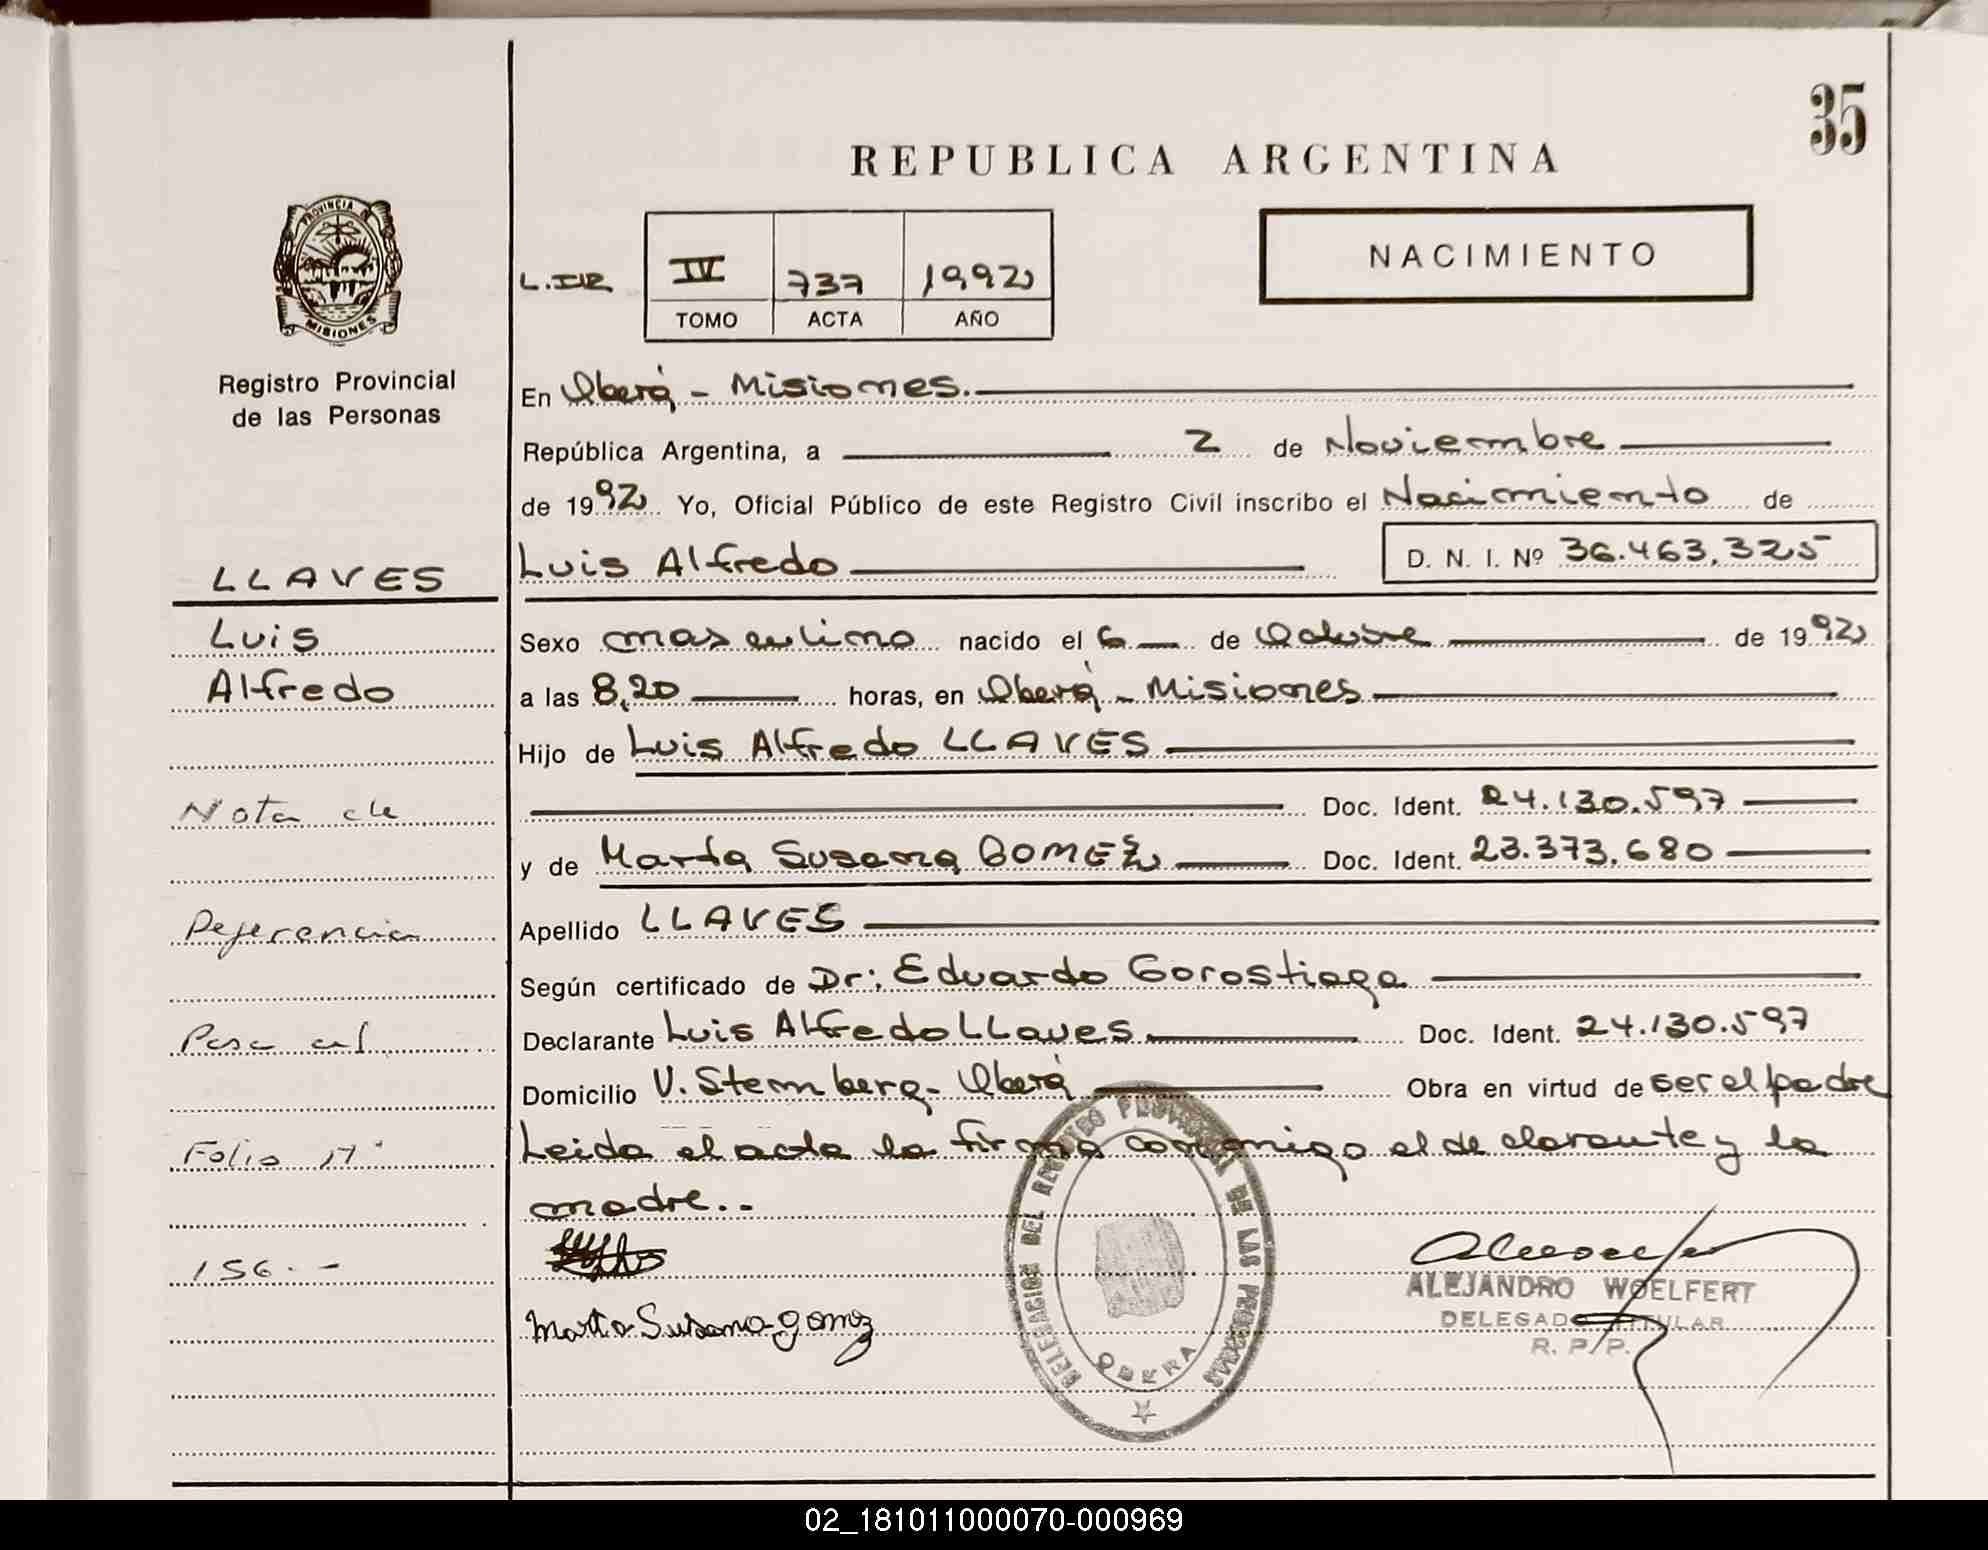 35
REPUBLICA ARGENTINA
PROVINCIA DE
MISIONES
Registro Provincial
de las Personas
L. IIR
IV 737 1992
TOMO ACTA AÑO
NACIMIENTO
En Oberá - Misiones.
República Argentina, a 2 de Noviembre
de 1992 Yo, Oficial Público de este Registro Civil inscribo el Nacimiento de
LLAVES
Luis Alfredo D. N. I. Nº 36.463.325
Luis
Sexo masculino nacido el 6 de Octubre de 1992
Alfredo
a las 8,20 horas, en Oberá - Misiones
Hijo de Luis Alfredo LLAVES
Nota de
Doc. Ident. 24.130.597
y de Marta Susana GOMEZ Doc. Ident. 23.373.680
Referencia
Apellido LLAVES
Según certificado de Dr: Eduardo Gorostiaga
Pasa al
Declarante Luis Alfredo LLaves Doc. Ident. 24.130.597
Domicilio V. Stemberg - Oberá Obra en virtud de ser el padre
Folio Nº
Leida el acta la firma conmigo el declarante y la
madre..
156.-
Marta Susana gomez
DELEGACION DEL REGISTRO PROVINCIAL DE LAS PERSONAS
OBERA
ALEJANDRO WOELFERT
DELEGADO TITULAR
R. P. P.
02_181011000070-000969